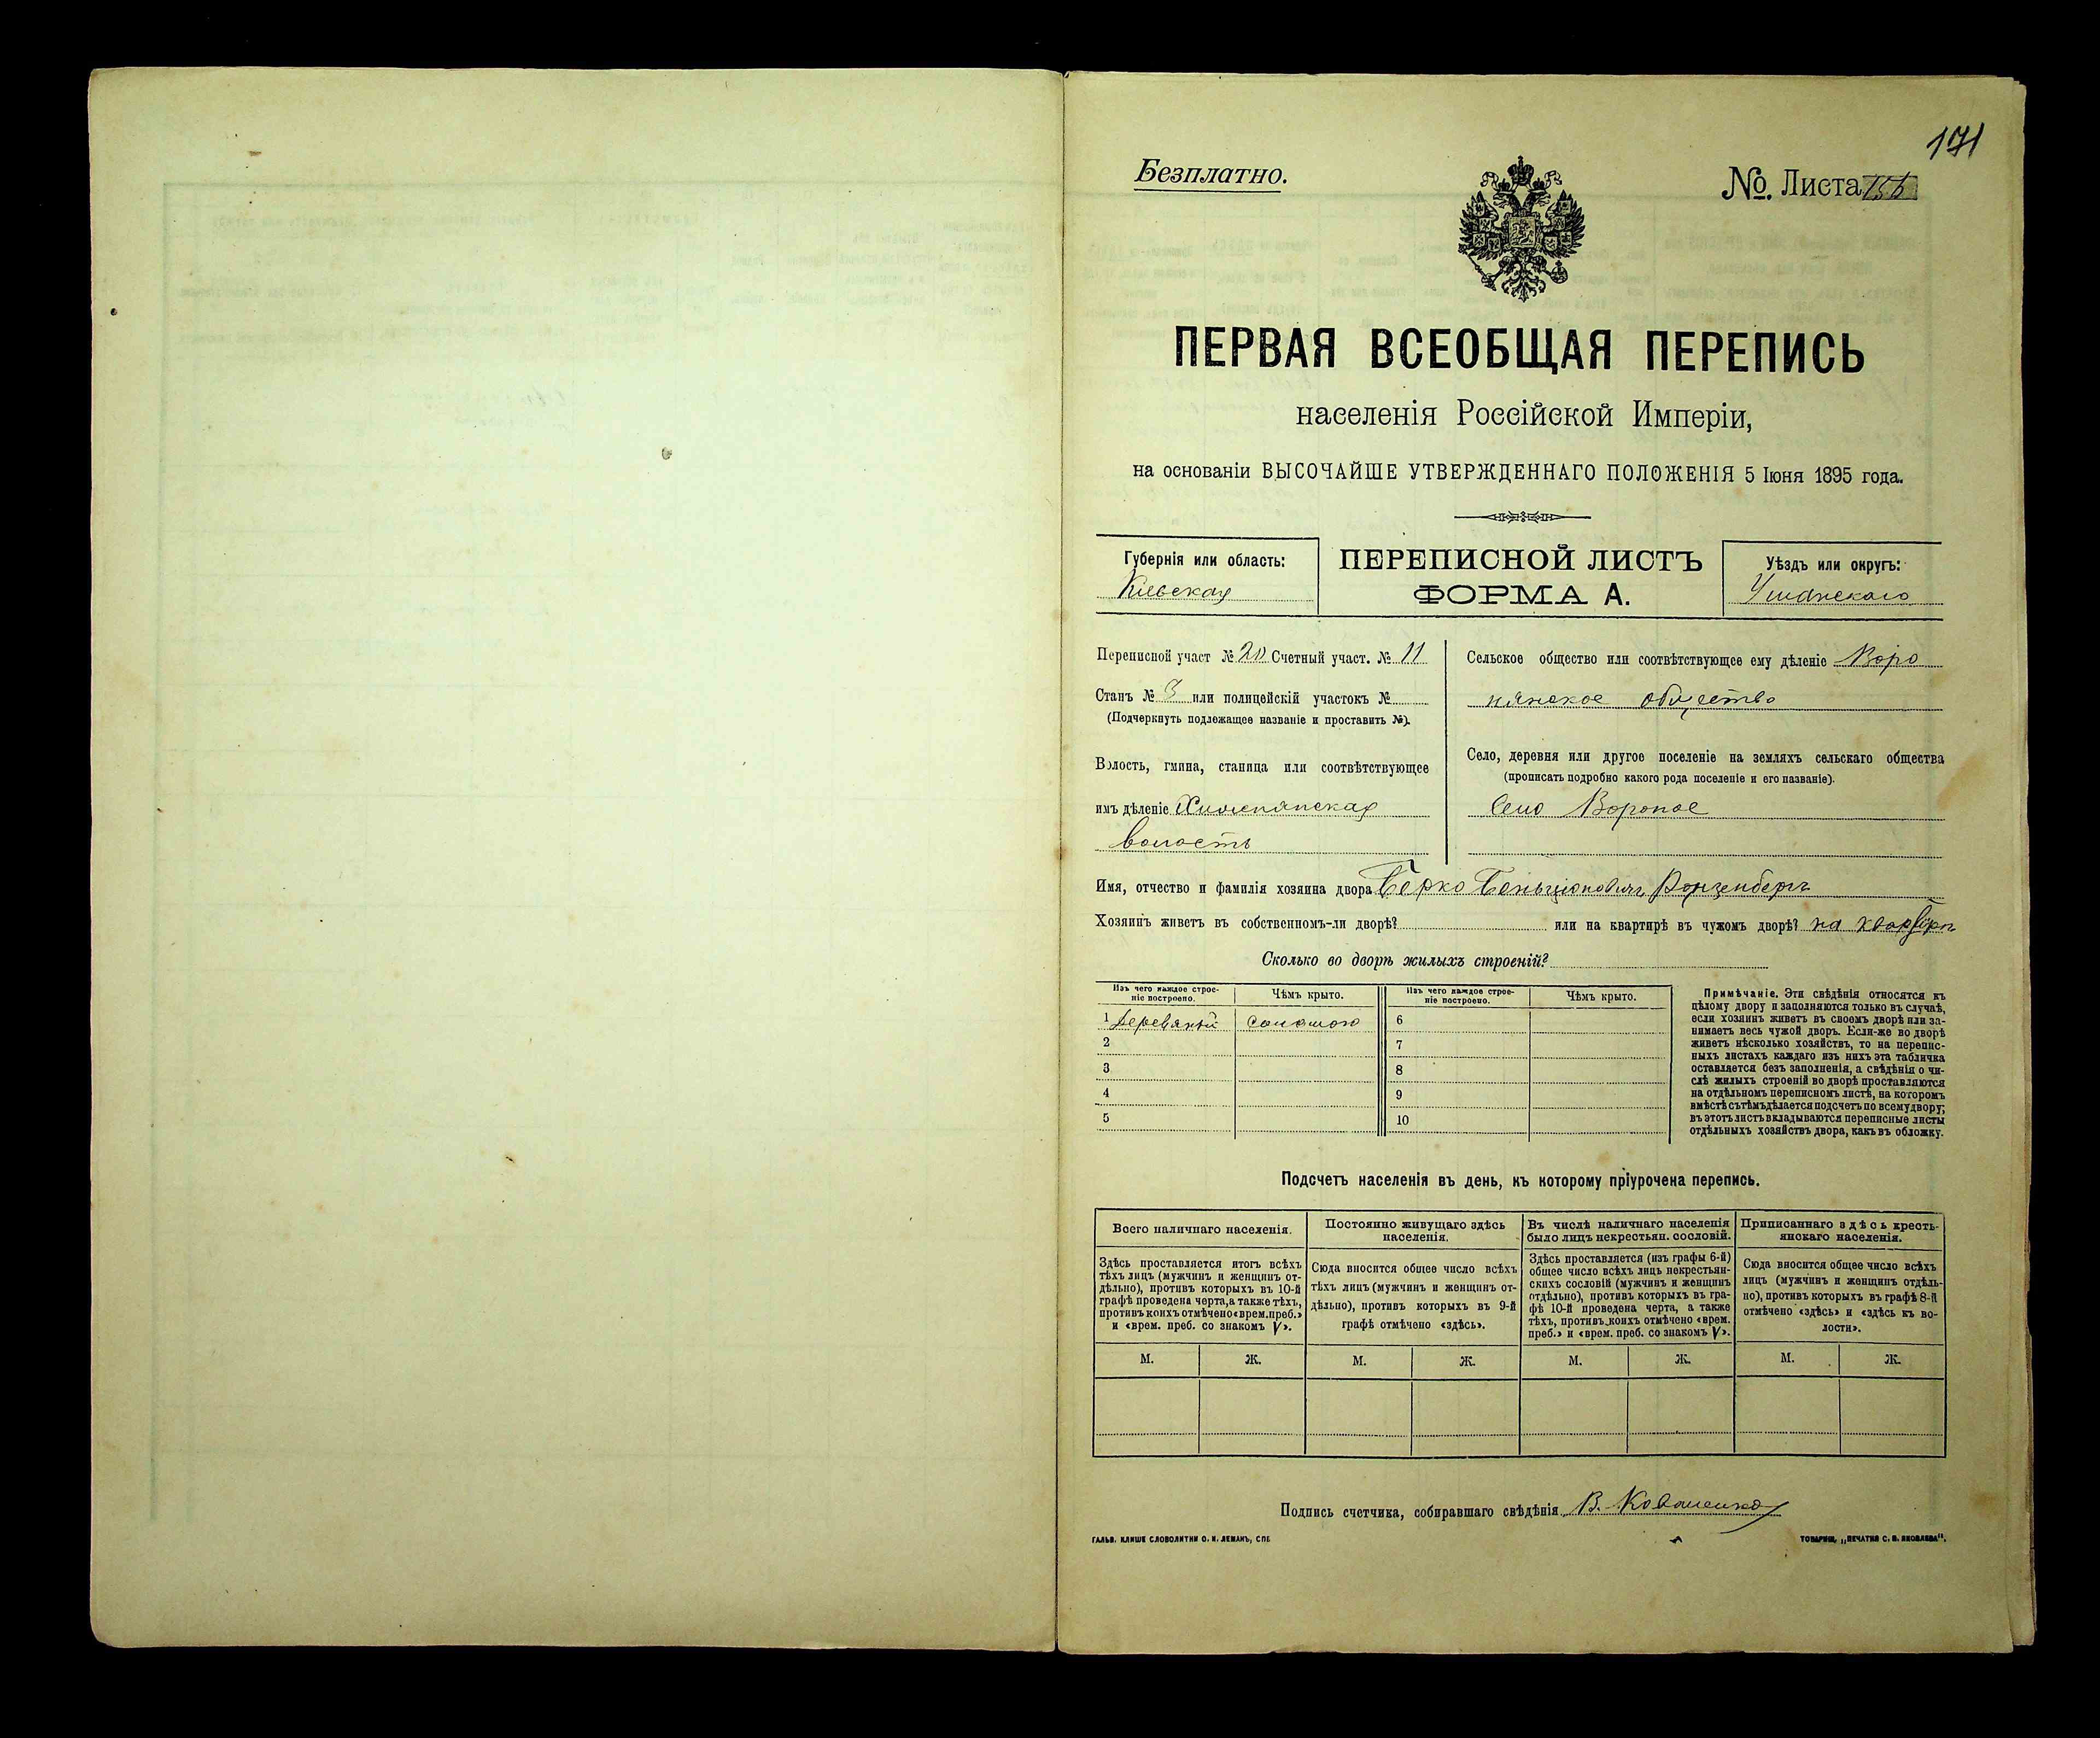 171
Безплатно.
№. Листа
ПЕРВАЯ ВСЕОБЩАЯ ПЕРЕПИСЬ
населенія Россійской Имперіи,
на основаніи ВЫСОЧАЙШЕ УТВЕРЖДЕННАГО ПОЛОЖЕНІЯ 5 Іюня 1895 года.
Губернія или область:
Кіевская
ПЕРЕПИСНОЙ ЛИСТЪ
ФОРМА А.
Уѣздъ или округъ:
Уманскаго
Переписной участ № 20 Счетный участ. № 11
Станъ № 3 или полицейскій участокъ №
(Подчеркнуть подлежащее названіе и проставить №).
Волость, гмина, станица или соотвѣтствующее
имъ дѣленіе
волость
Сельское общество или соотвѣтствующее ему дѣленіе Воро
нянское общество
Село, деревня или другое поселеніе на земляхъ сельскаго общества
(прописать подробно какого рода поселеніе и его названіе).
Село Вороное
Имя, отчество и фамилія хозяина двора Берко Беньціоновичъ
Хозяинъ живетъ въ собственномъ-ли дворѣ? или на квартирѣ въ чужомъ дворѣ? на
Сколько во дворѣ жилыхъ строеній?
Изъ чего каждое строе-
ніе построено.
Чѣмъ крыто.
Изъ чего каждое строе-
ніе построено.
Чѣмъ крыто.
1 соломою 6
2 7
3 8
4 9
5 10
Примѣчаніе. Эти свѣдѣнія относятся къ
цѣлому двору и заполняются только въ случаѣ,
если хозяинъ живетъ въ своемъ дворѣ или за-
нимаетъ весь чужой дворъ. Если-же во дворѣ
живетъ нѣсколько хозяйствъ, то на перепис-
ныхъ листахъ каждаго изъ нихъ эта табличка
оставляется безъ заполненія, а свѣдѣнія о чи-
слѣ жилыхъ строеній во дворѣ проставляются
на отдѣльномъ переписномъ листѣ, на которомъ
вмѣстѣ съ тѣмъ дѣлается подсчетъ по всему двору;
въ этотъ листъ вкладываются переписные листы
отдѣльныхъ хозяйствъ двора, какъ въ обложку.
Подсчетъ населенія въ день, къ которому пріурочена перепись.
Всего наличнаго населенія.
Здѣсь проставляется итогъ всѣхъ
тѣхъ лицъ (мужчинъ и женщинъ от-
дѣльно), противъ которыхъ въ 10-й
графѣ проведена черта, а также тѣхъ,
противъ коихъ отмѣчено «врем. преб.»
и «врем. преб. со знакомъ V».
М. Ж.
Постоянно живущаго здѣсь
населенія.
Сюда вносится общее число всѣхъ
тѣхъ лицъ (мужчинъ и женщинъ от-
дѣльно), противъ которыхъ въ 9-й
графѣ отмѣчено «здѣсь».
М. Ж.
Въ числѣ наличнаго населенія
было лицъ некрестьян. сословій.
Здѣсь проставляется (изъ графы 6-й)
общее число всѣхъ лицъ некрестьян-
скихъ сословій (мужчинъ и женщинъ
отдѣльно), противъ которыхъ въ гра-
фѣ 10-й проведена черта, а также
тѣхъ, противъ коихъ отмѣчено «врем.
преб.» и «врем. преб. со знакомъ V».
М. Ж.
Приписаннаго здѣсь кресть-
янскаго населенія.
Сюда вносится общее число всѣхъ
лицъ (мужчинъ и женщинъ отдѣль-
но), противъ которыхъ въ графѣ 8-й
отмѣчено «здѣсь» и «здѣсь къ во-
лости».
М. Ж.
Подпись счетчика, собиравшаго свѣдѣнія В. Коваленко
ГАЛЬВ. КЛИШЕ СЛОВОЛИТНИ О. И. ЛЕМАНЪ, СПБ.
ТОВАРИЩ. „ПЕЧАТНЯ С. П. ЯКОВЛЕВА".